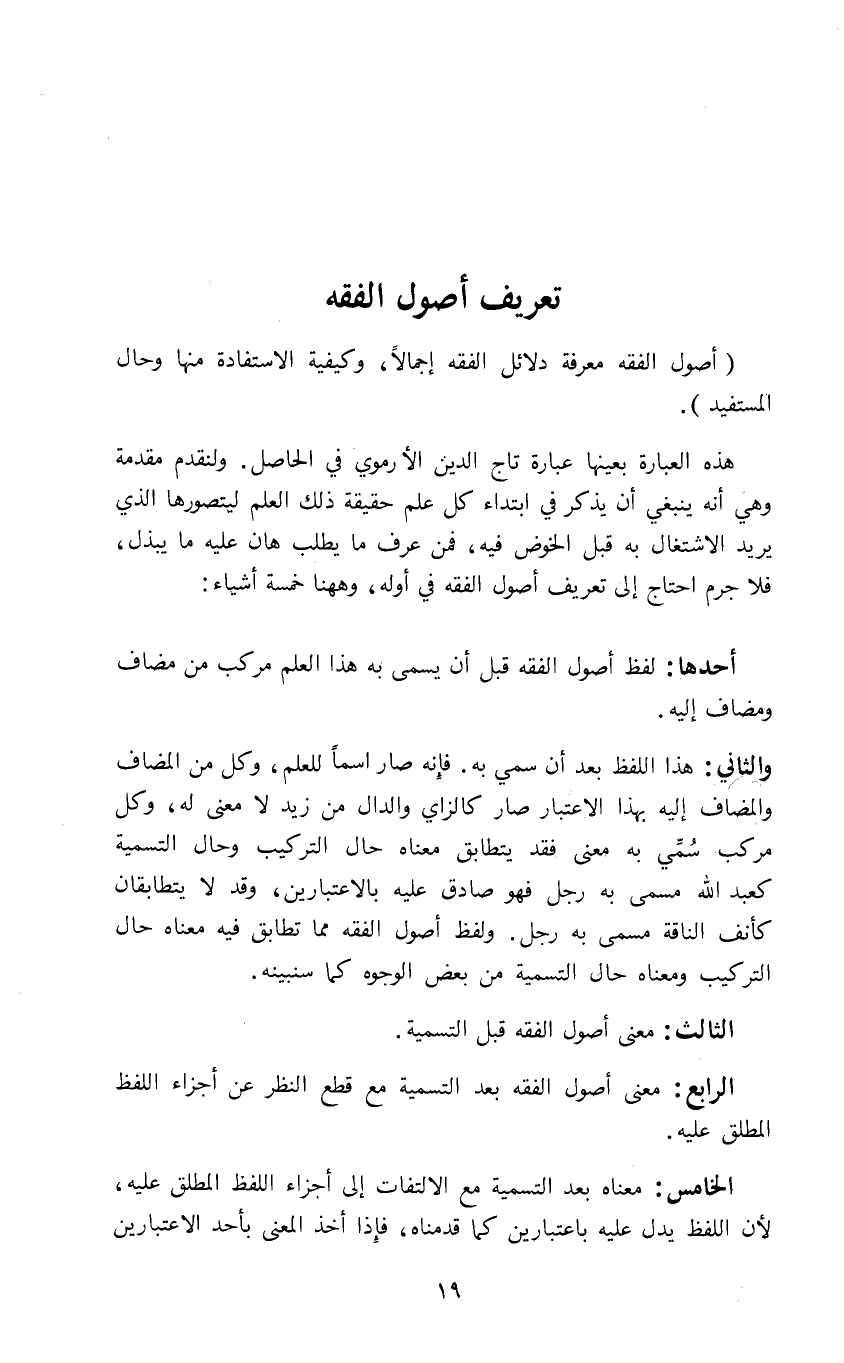 تعريف أصول الفقه
( أصول الفقه معرفة دلائل الفقه إجمالاً، وكيفية الاستفادة منها وحال
المستفيد ) .
هذه العبارة بعينها عبارة تاج الدين الأرموي في الحاصل. ولنقدم مقدمة
وهي أنه ينبغي أن يذكر في ابتداء كل علم حقيقة ذلك العلم ليتصورها الذي
يريد الاشتغال به قبل الخوض فيه، فمن عرف ما يطلب هان عليه ما يبذل،
فلا جرم احتاج إلى تعريف أصول الفقه في أوله، وههنا خمسة أشياء:
أحدها: لفظ أصول الفقه قبل أن يسمى به هذا العلم مركب من مضاف
ومضاف إليه.
والثاني: هذا اللفظ بعد أن سمي به. فإنه صار اسماً للعلم، وكل من المضاف
والمضاف إليه بهذا الاعتبار صار كالزاي والدال من زيد لا معنى له، وكل
مركب سُمِّي به معنى فقد يتطابق معناه حال التركيب وحال التسمية
كعبد الله مسمى به رجل فهو صادق عليه بالاعتبارين، وقد لا يتطابقان
كأنف الناقة مسمى به رجل. ولفظ أصول الفقه مما تطابق فيه معناه حال
التركيب ومعناه حال التسمية من بعض الوجوه كما سنبينه.
الثالث: معنى أصول الفقه قبل التسمية.
الرابع: معنى أصول الفقه بعد التسمية مع قطع النظر عن أجزاء اللفظ
المطلق عليه.
الخامس: معناه بعد التسمية مع الالتفات إلى أجزاء اللفظ المطلق عليه،
لأن اللفظ يدل عليه باعتبارين كما قدمناه، فإذا أخذ المعنى بأحد الاعتبارين
١٩